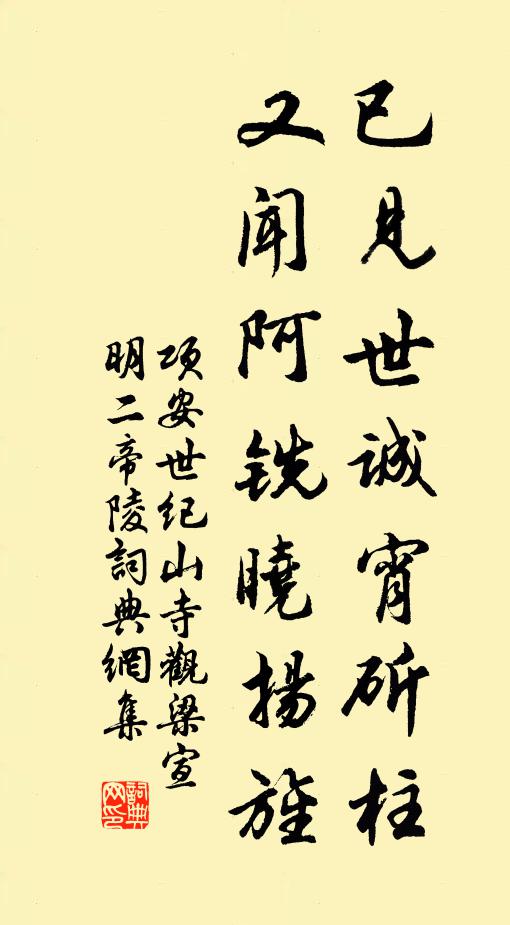 已见世诚宵斫柱
又闻阿铣晓扬旌
项安世纪山寺觀梁宣
明二帝陵詞典網集
詞典网印